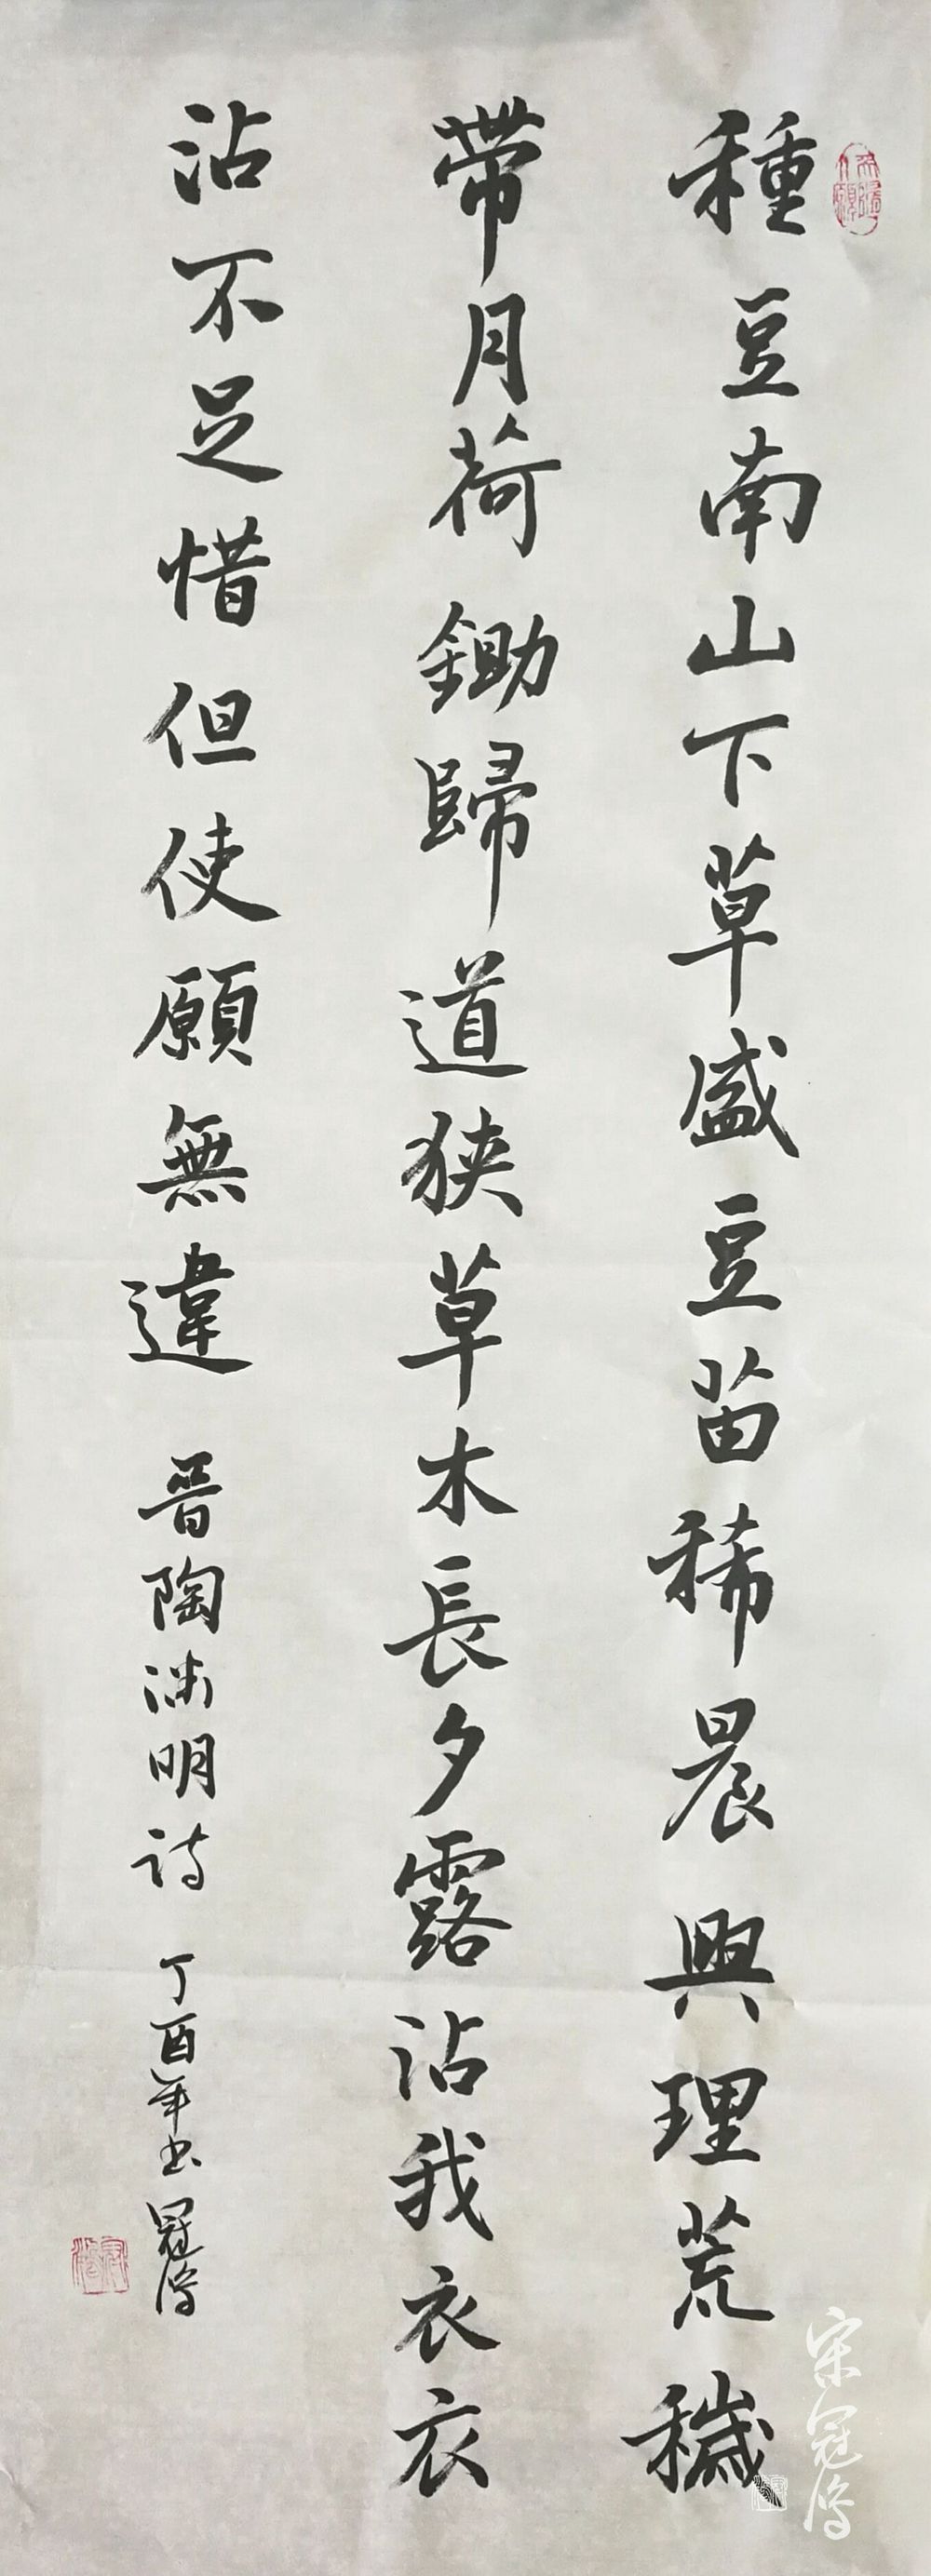 種豆南山下草盛豆苗稀晨興理荒穢
帶月荷鋤歸道狹草木長夕露沾我衣衣
沾不足惜但使願無違 晋陶渊明诗 丁酉年书 冠
宋冠